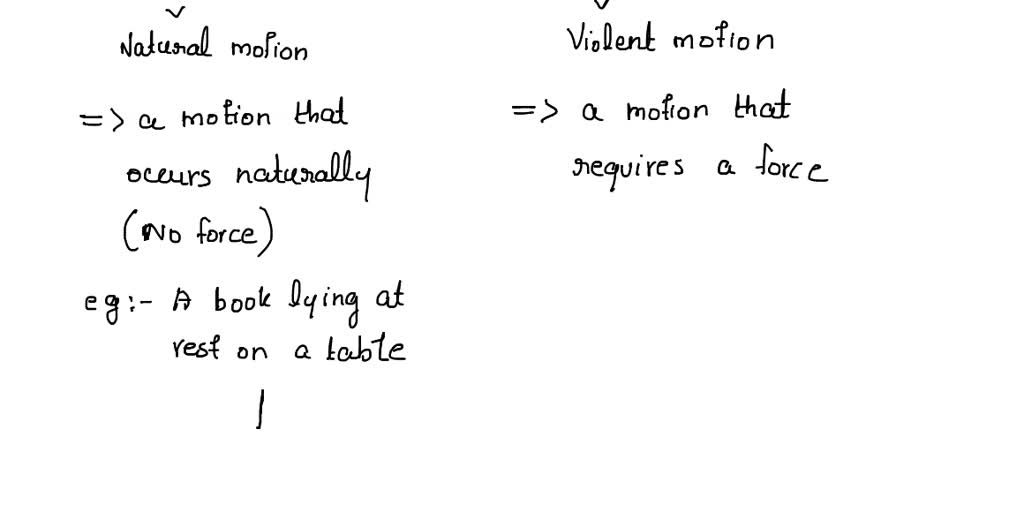 Natural motion
=> a motion that
occurs naturally
(No force)
eg:- A book lying at
rest on a table
Violent motion
=> a motion that
requires a force